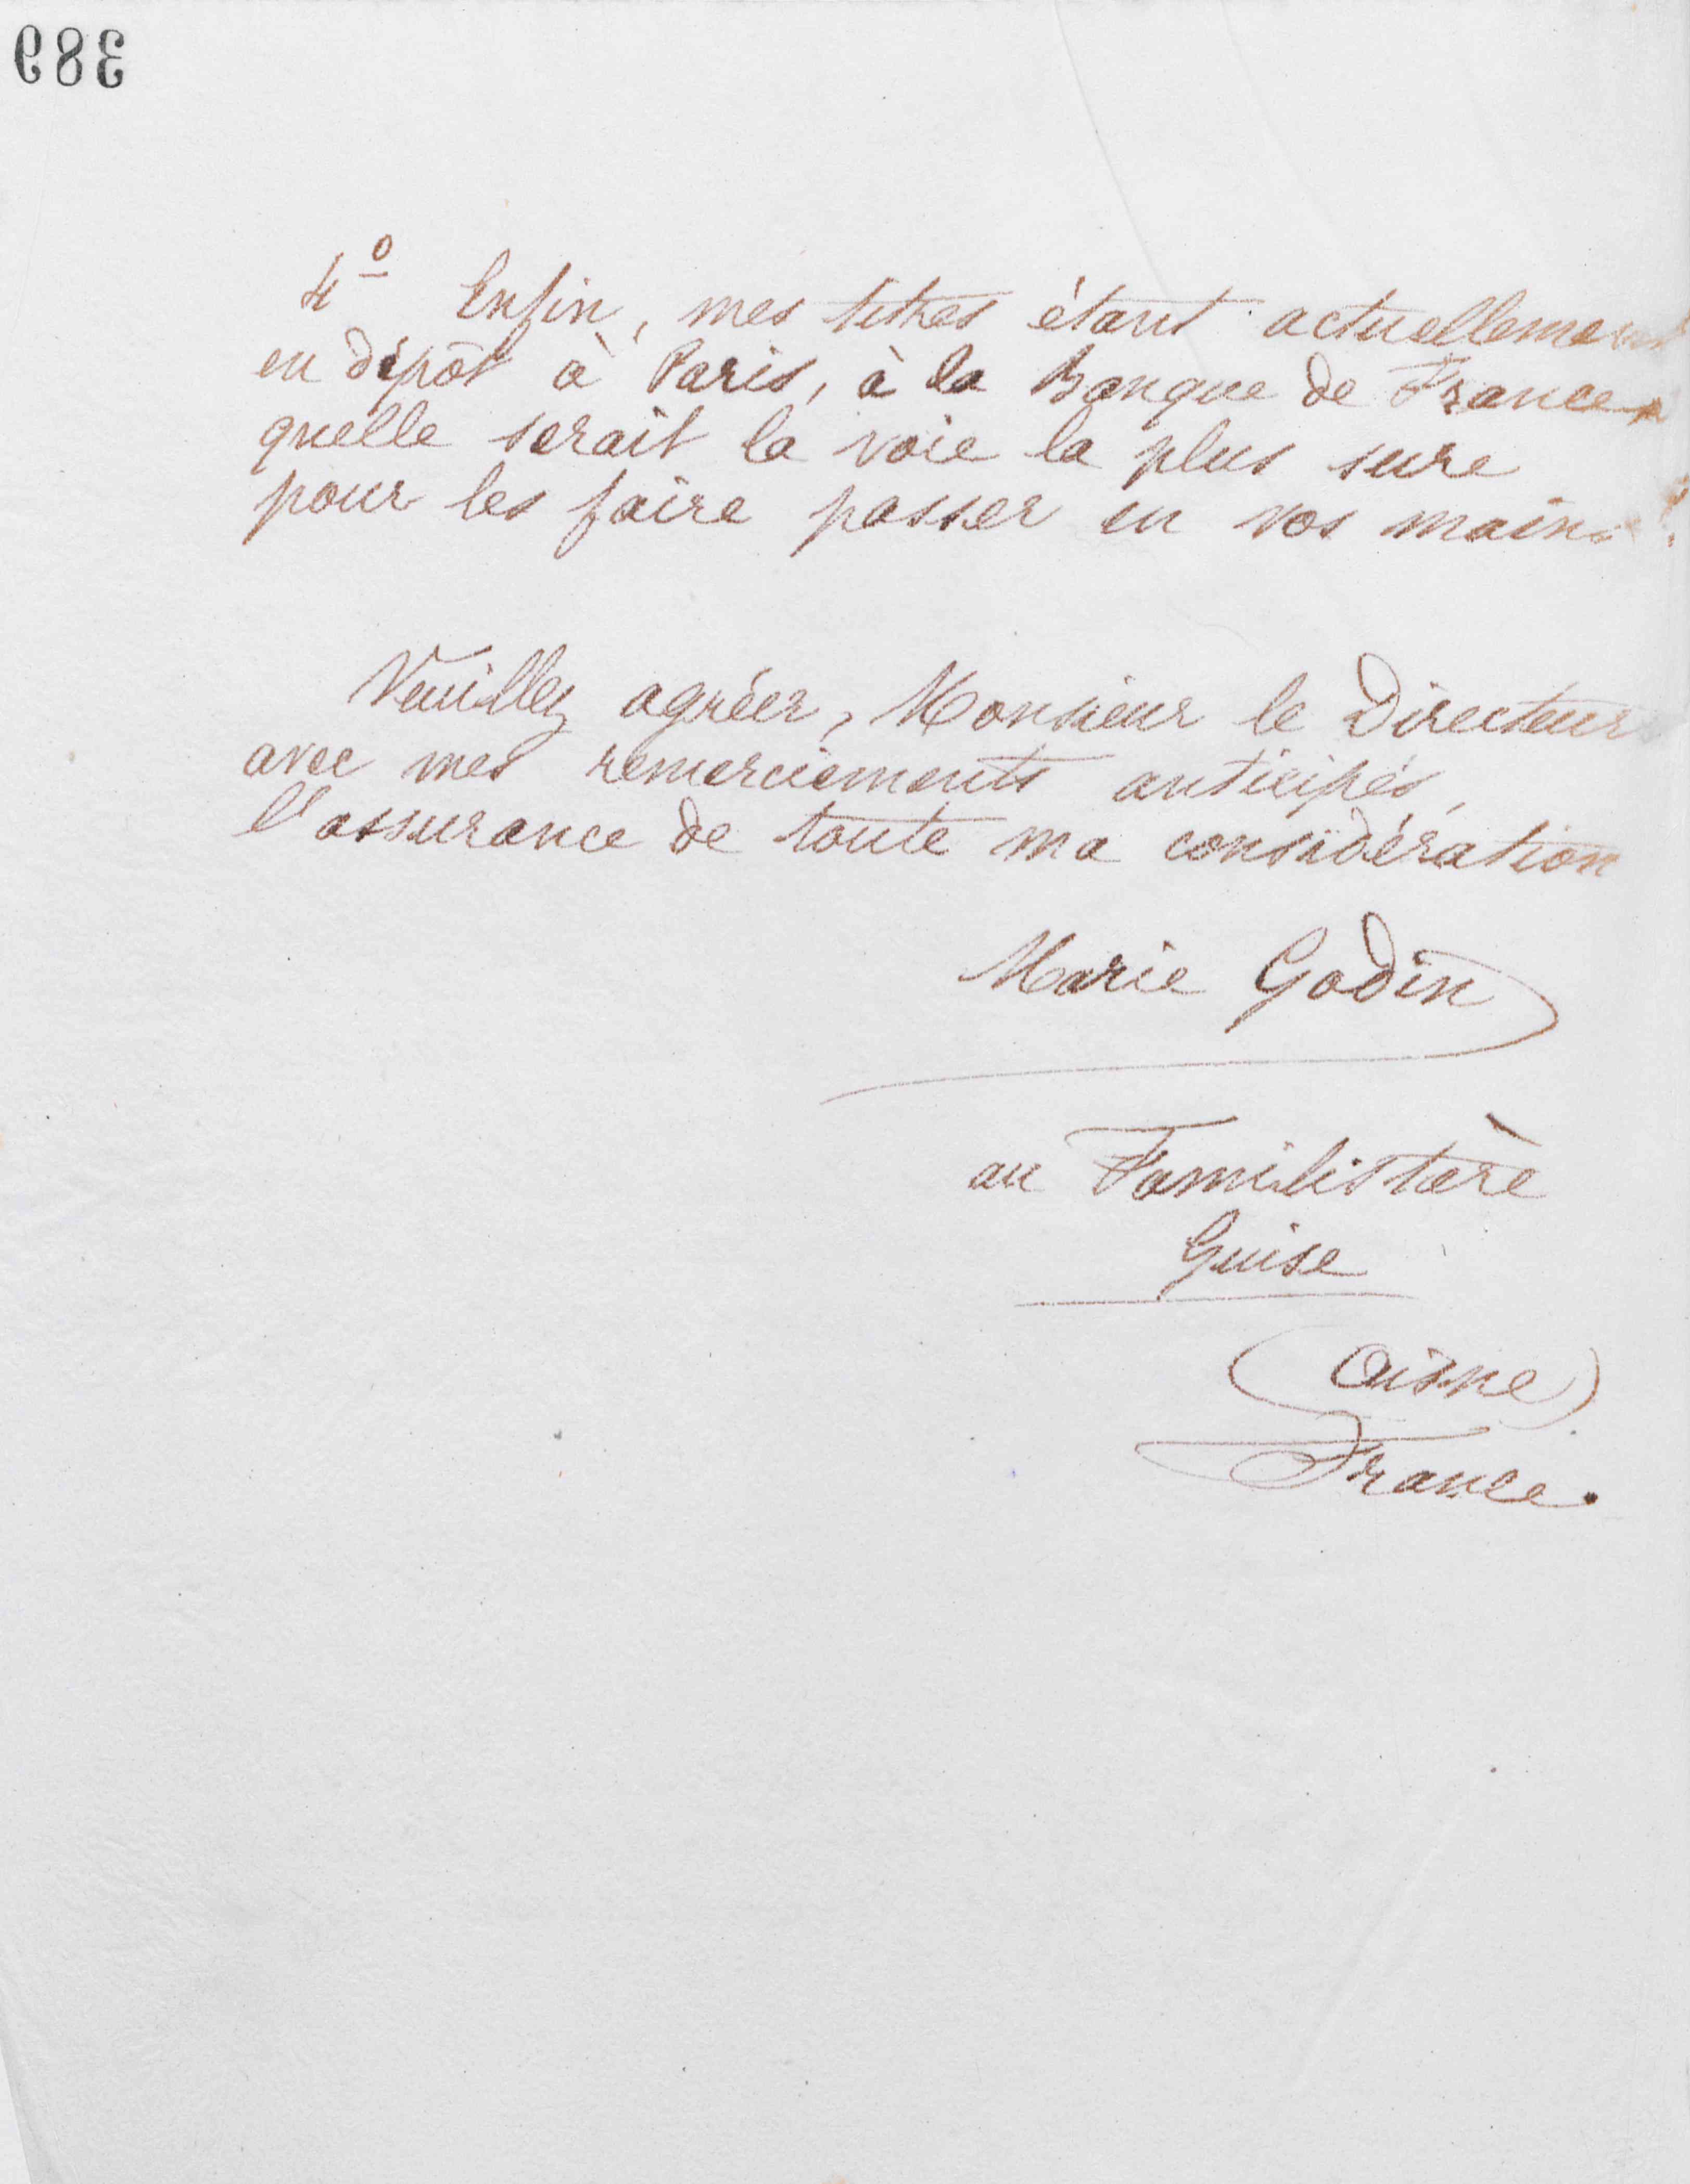 389
4º Enfin, mes titres étant actuellement
en dépôt à Paris, à la Banque de France,
quelle serait la voie la plus sure
pour les faire passer en vos mains ?
Veuillez agréer, Monsieur le Directeur
avec mes remerciements anticipés,
l'assurance de toute ma considération
Marie Godin
au Familistère
Guise
(Aisne)
France.